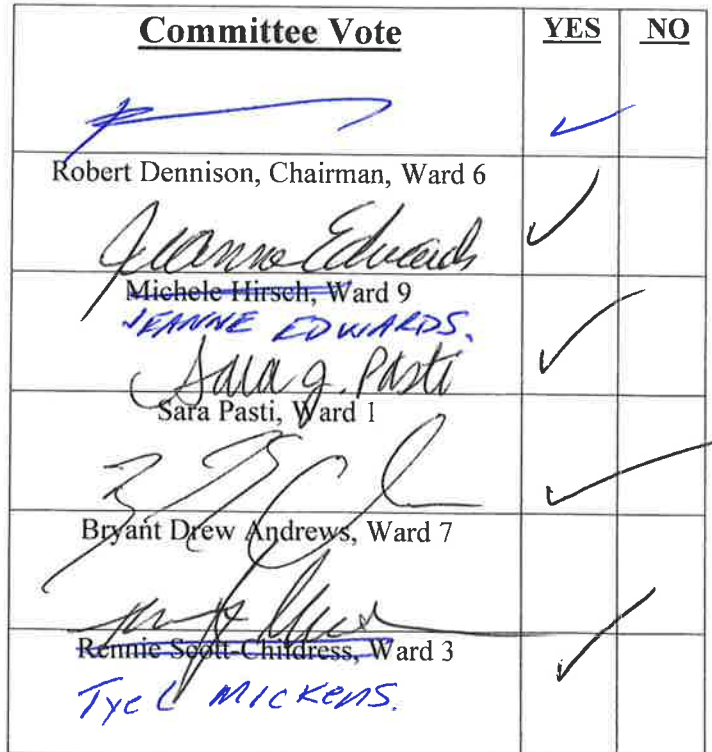 Committee Vote YES NO
Robert Dennison, Chairman, Ward 6
Jeanne Edwards
Michele Hirsch, Ward 9
JEANNE EDWARDS.
Sara J. Pasti
Sara Pasti, Ward 1
Bryant Drew Andrews, Ward 7
Rennie Scott-Childress, Ward 3
MICKENS.